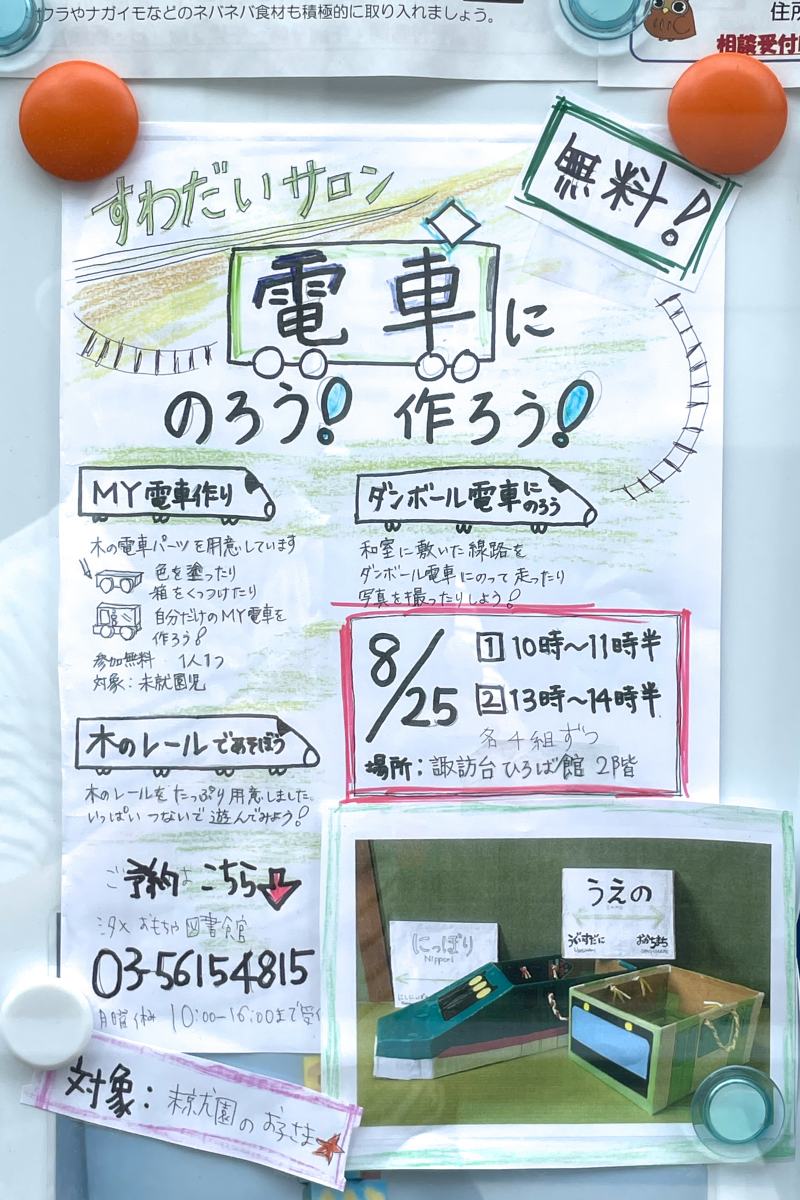 オクラやナガイモなどのネバネバ食材も積極的に取り入れましょう。
住所
相談受付
無料!
すわだいサロン
電車に
のろう! 作ろう!
MY電車作り
木の電車パーツを用意しています
色を塗ったり
箱をくっつけたり
自分だけのMY電車を
作ろう!
参加無料 1人1つ
対象:未就園児
ダンボール電車にのろう
和室に敷いた線路を
ダンボール電車にのって走ったり
写真を撮ったりしよう!
8/25
1 10時~11時半
2 13時~14時半
各4組ずつ
場所:諏訪台ひろば館 2階
木のレールであそぼう
木のレールをたっぷり用意しました。
いっぱいつないで遊んでみよう!
ご予約はこちら
おもちゃ図書館
03-56154815
月曜休み 10:00-16:00まで受
うえの
うぐいすだに
おかちまち
にっぽり
Nippori
対象:未就園のお子さま